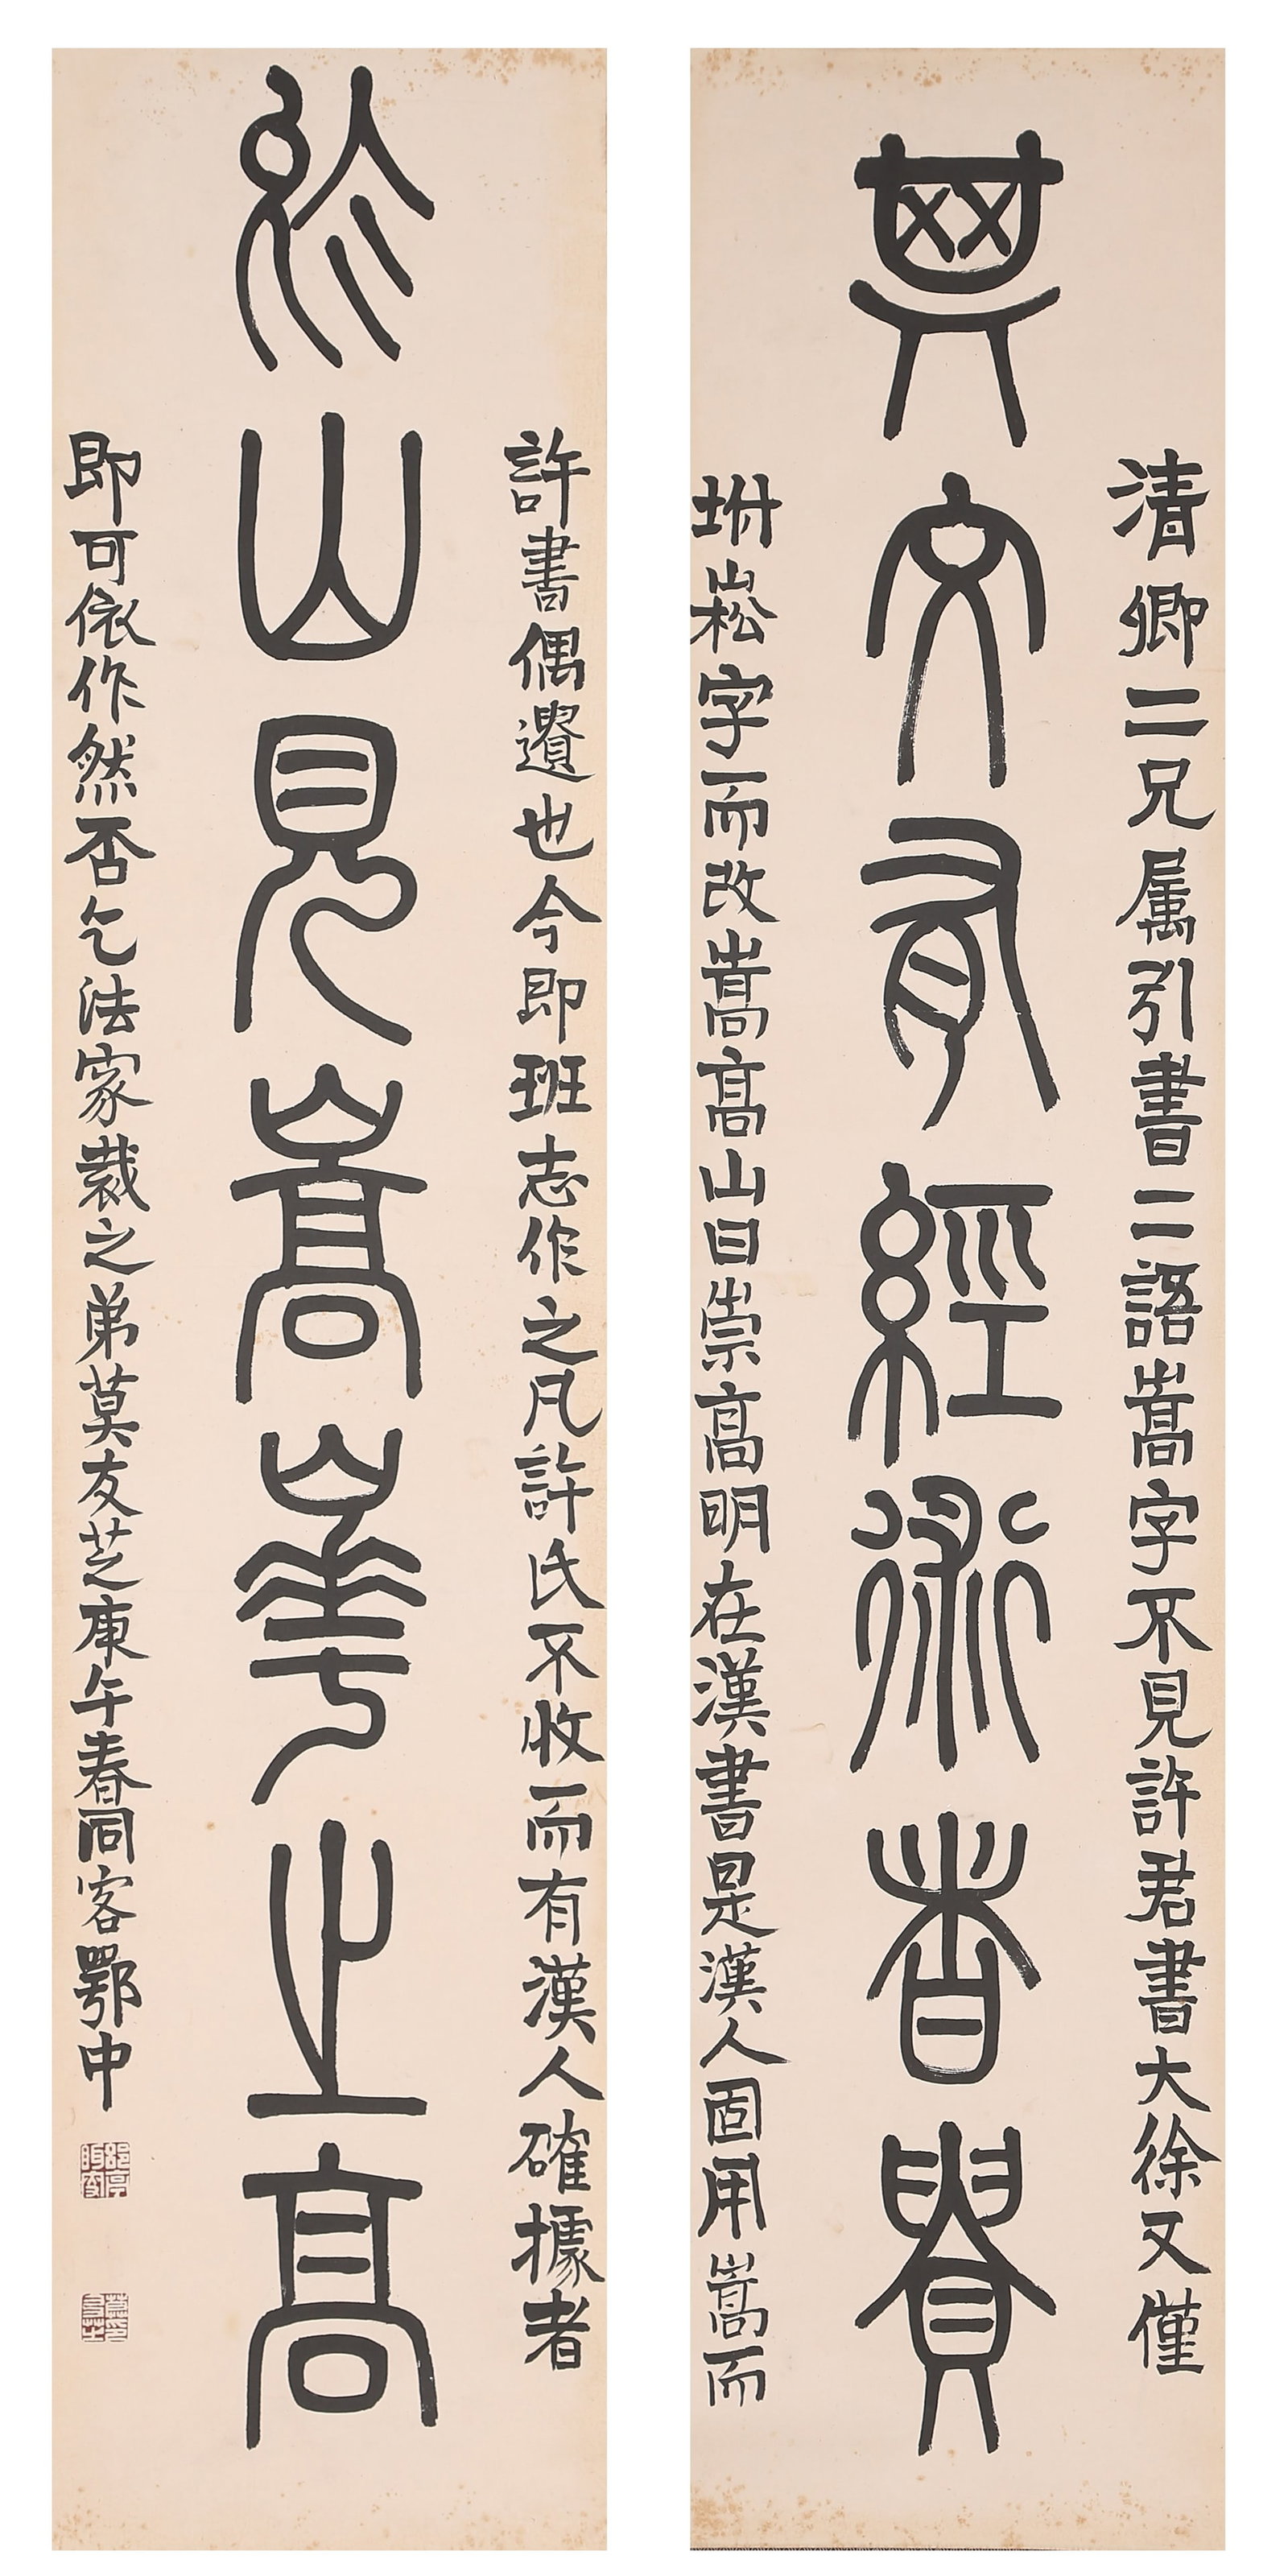 清卿二兄属引書二語嵩字不見許君書大徐又僅
其文有經術者貴
坿崧字而改嵩高山曰崇高明在漢書是漢人固用嵩而
許書偶遺也今即班志作之凡許氏不收而有漢人確據者
於山見嵩崋之高
即可依作然否乞法家裁之弟莫友芝庚午春同客鄂中
郘亭眲叟
莫印友芝